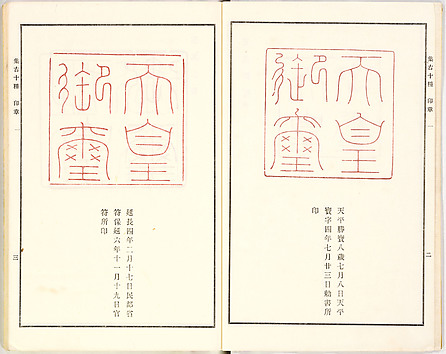 集古十種 印章 一
天皇
御璽
天平勝寶八歲七月八日天平
寶字四年七月廿三日勅書所
印
二
天皇
御璽
延長四年二月十七日民部省
符保延六年十一月十九日官
符所印
集古十種 印章 一
三